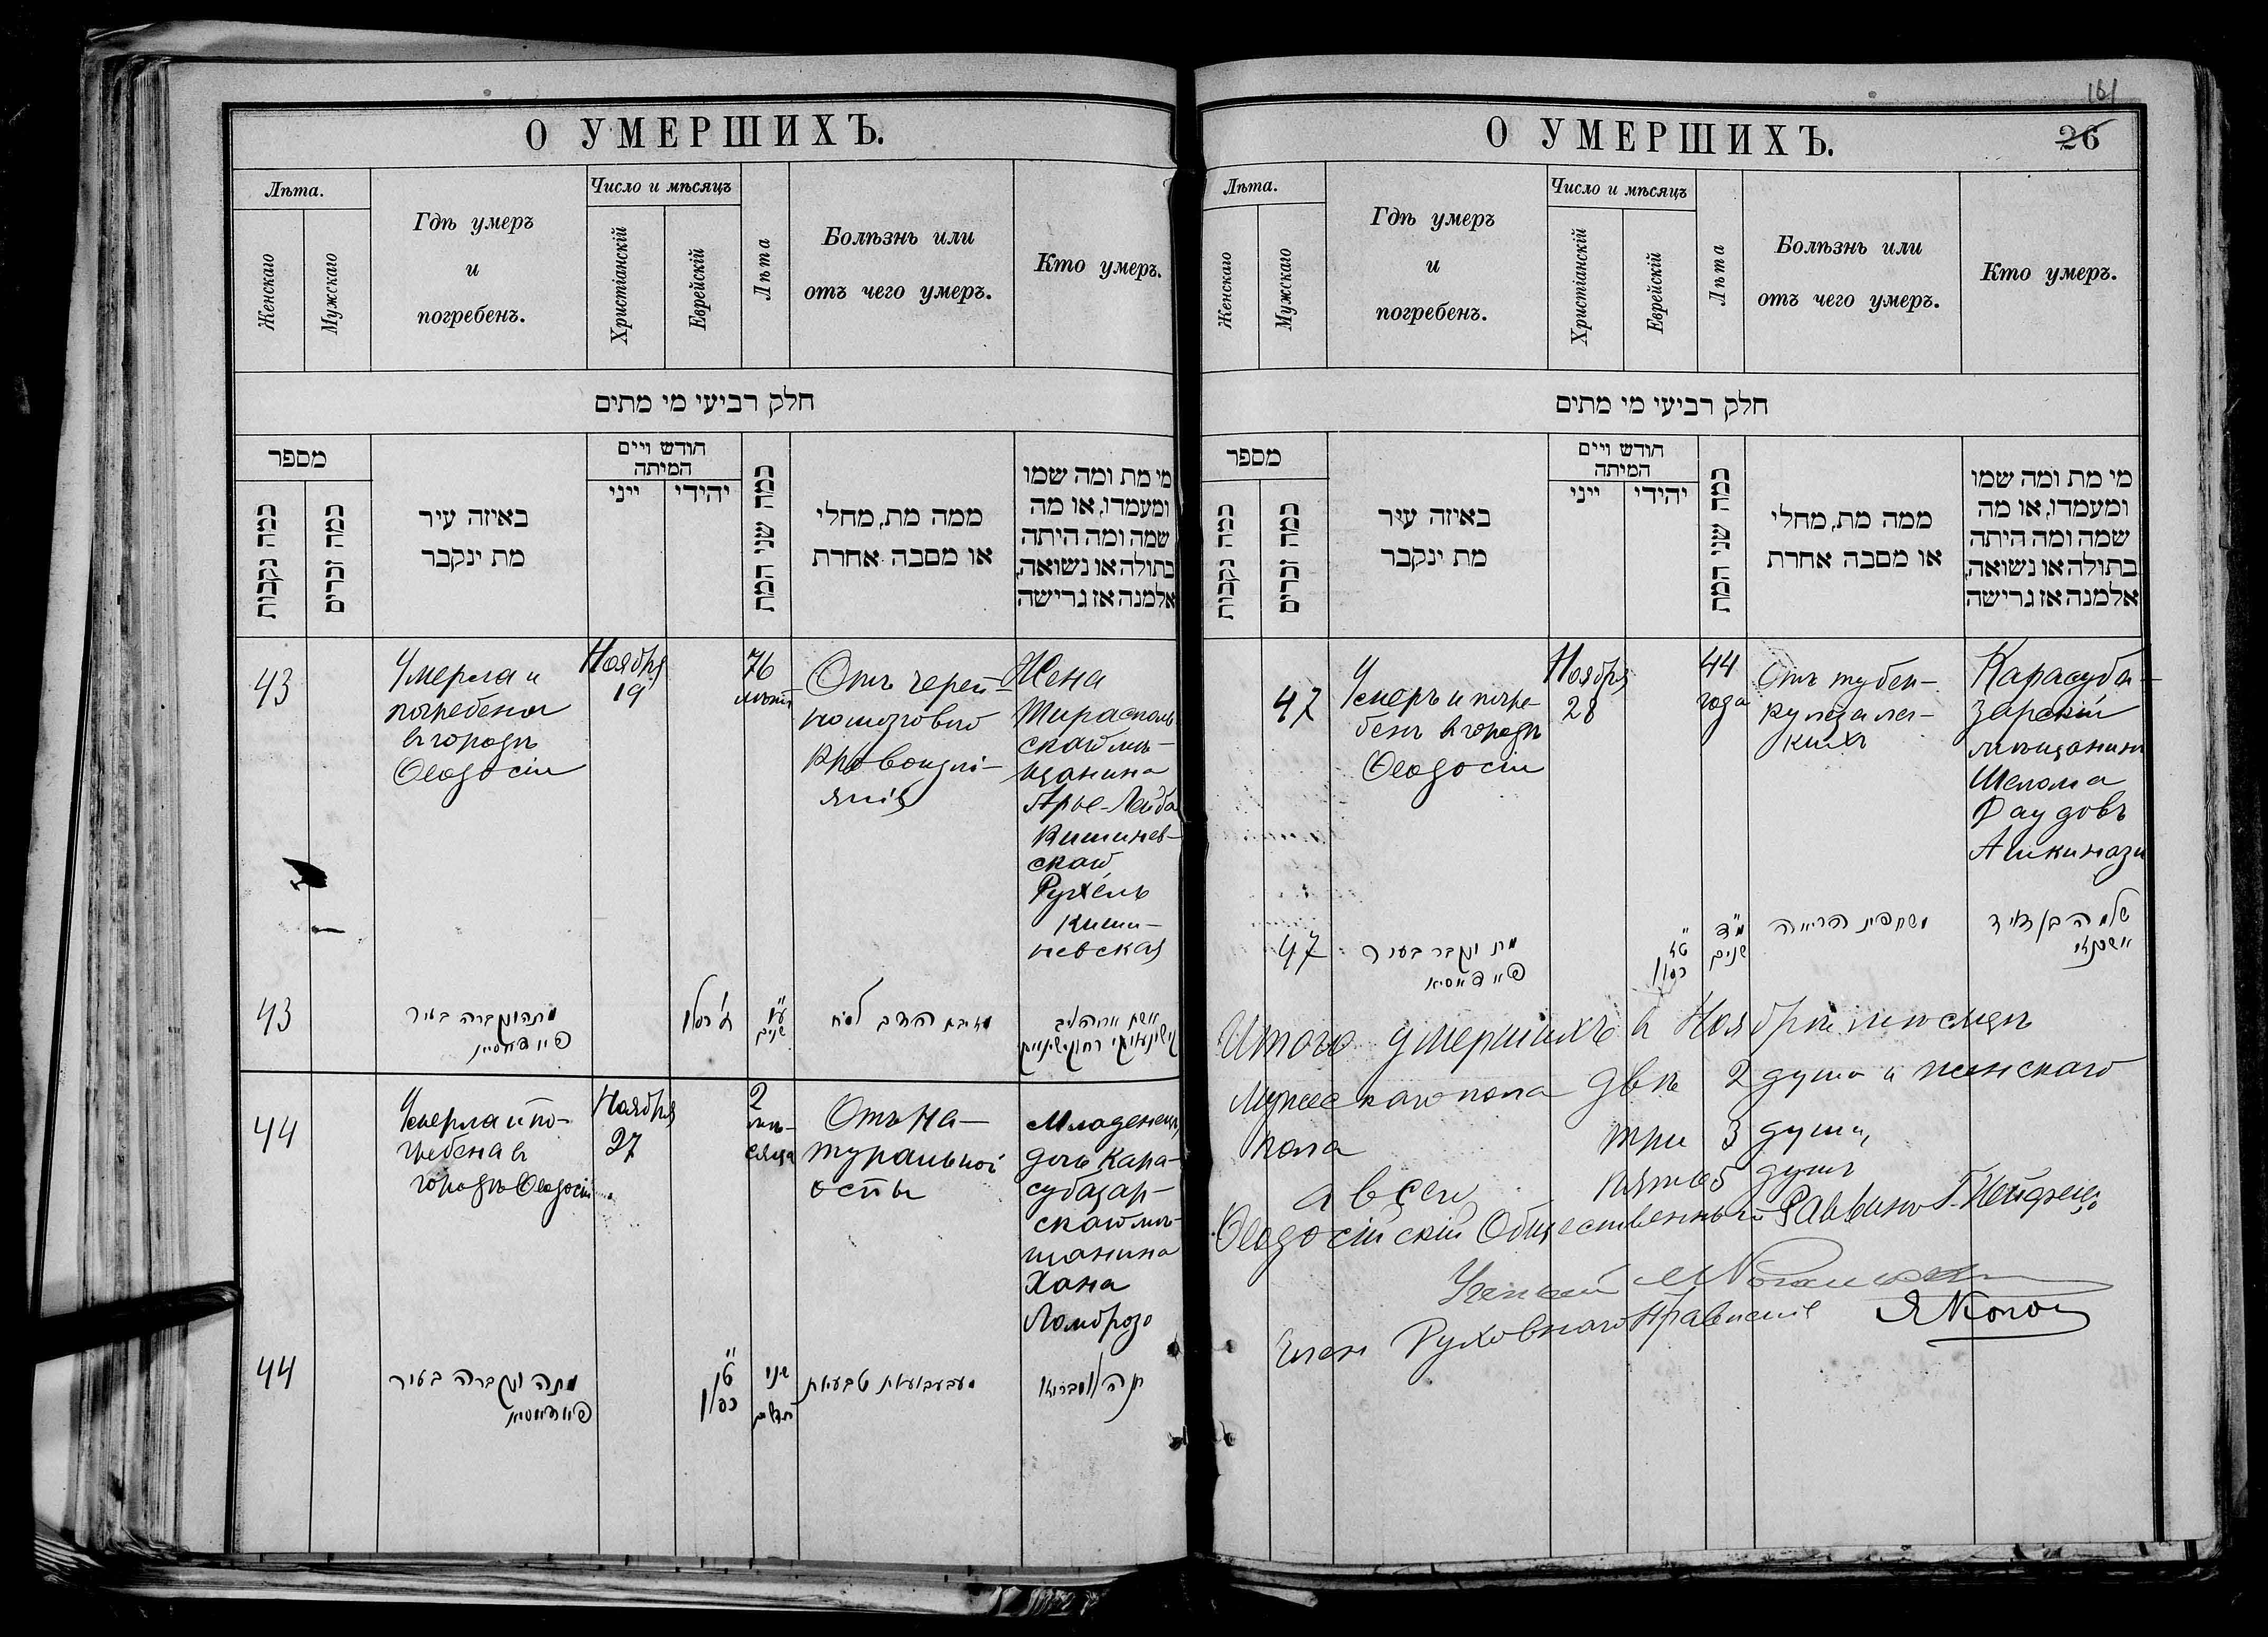 О УМЕРШИХЪ.
Лѣта.
Женскаго
Мужскаго
Гдѣ умеръ
и
погребенъ.
Число и мѣсяцъ
Христіанскій
Еврейскій
Лѣта
Болѣзнь или
отъ чего умеръ.
Кто умеръ.
חלק רביעי מי מתים
מספר
כמה נקבות
כמה זכרים
באיזה עיר
מת ינקבר
חודש ויים
המיתה
ייני
יהידי
כמה שני המת
ממה מת, מחלי
או מסבה אחרת
מי מת ומה שמו
ומעמדו, או מה
שמה ומה היתה
בתולה או נשואה,
אלמנה אז גרישה
43
Умерла и
погребена
въ городѣ
Ѳеодосіи
Ноября
19
76
лѣтъ
Отъ череп-
номозгового
кровоизлі-
янія
Жена
Тирасполь-
скаго мѣ-
щанина
Арье-Лейба
Кишинев-
скаго
Рухель
Киши-
невская
43
מתה ונקברה בעיר
פיאדאסיא
כסלו
ע"ו
שנים
44
Умерла и по-
гребена въ
городѣ Ѳеодосіи
Ноября
27
2
мѣ-
сяца
Отъ на-
туральной
оспы
Младенецъ,
дочь Кара-
субазар-
скаго мѣ-
щанина
Хана
Ломброзо
44
מתה ונקברה בעיר
פיאדאסיא
ט"ו
כסלו
שני
חדשים
אבעבועות טבעות
חנה לומברוזו
161
О УМЕРШИХЪ.
26
Лѣта.
Женскаго
Мужскаго
Гдѣ умеръ
и
погребенъ.
Число и мѣсяцъ
Христіанскій
Еврейскій
Лѣта
Болѣзнь или
отъ чего умеръ.
Кто умеръ.
חלק רביעי מי מתים
מספר
כמה נקבות
כמה זכרים
באיזה עיר
מת ינקבר
חודש ויים
המיתה
ייני
יהידי
כמה שני המת
ממה מת, מחלי
או מסבה אחרת
מי מת ומה שמו
ומעמדו, או מה
שמה ומה היתה
בתולה או נשואה,
אלמנה אז גרישה
47
Умеръ и погре-
бенъ въ городѣ
Ѳеодосіи
Ноября
28
44
года
Отъ тубер-
кулеза лег-
кихъ
Карасуба-
зарскій
мѣщанинъ
Шелома
Даудовъ
Ашкинази
47
מת ונקבר בעיר
פיאדאסיא
ט"ז
כסלו
מ"ד
שנים
משחפת הריאה
שלמה בן דאיד
אשכנזי
Итого умершихъ въ Ноябрѣ мѣсяцѣ
Мужескаго пола двѣ 2 души и женскаго
пола три 3 души,
а всего пять 5 душъ
Ѳеодосійскій Общественный Раввинъ
Ученый
Членъ Духовнаго Правленія